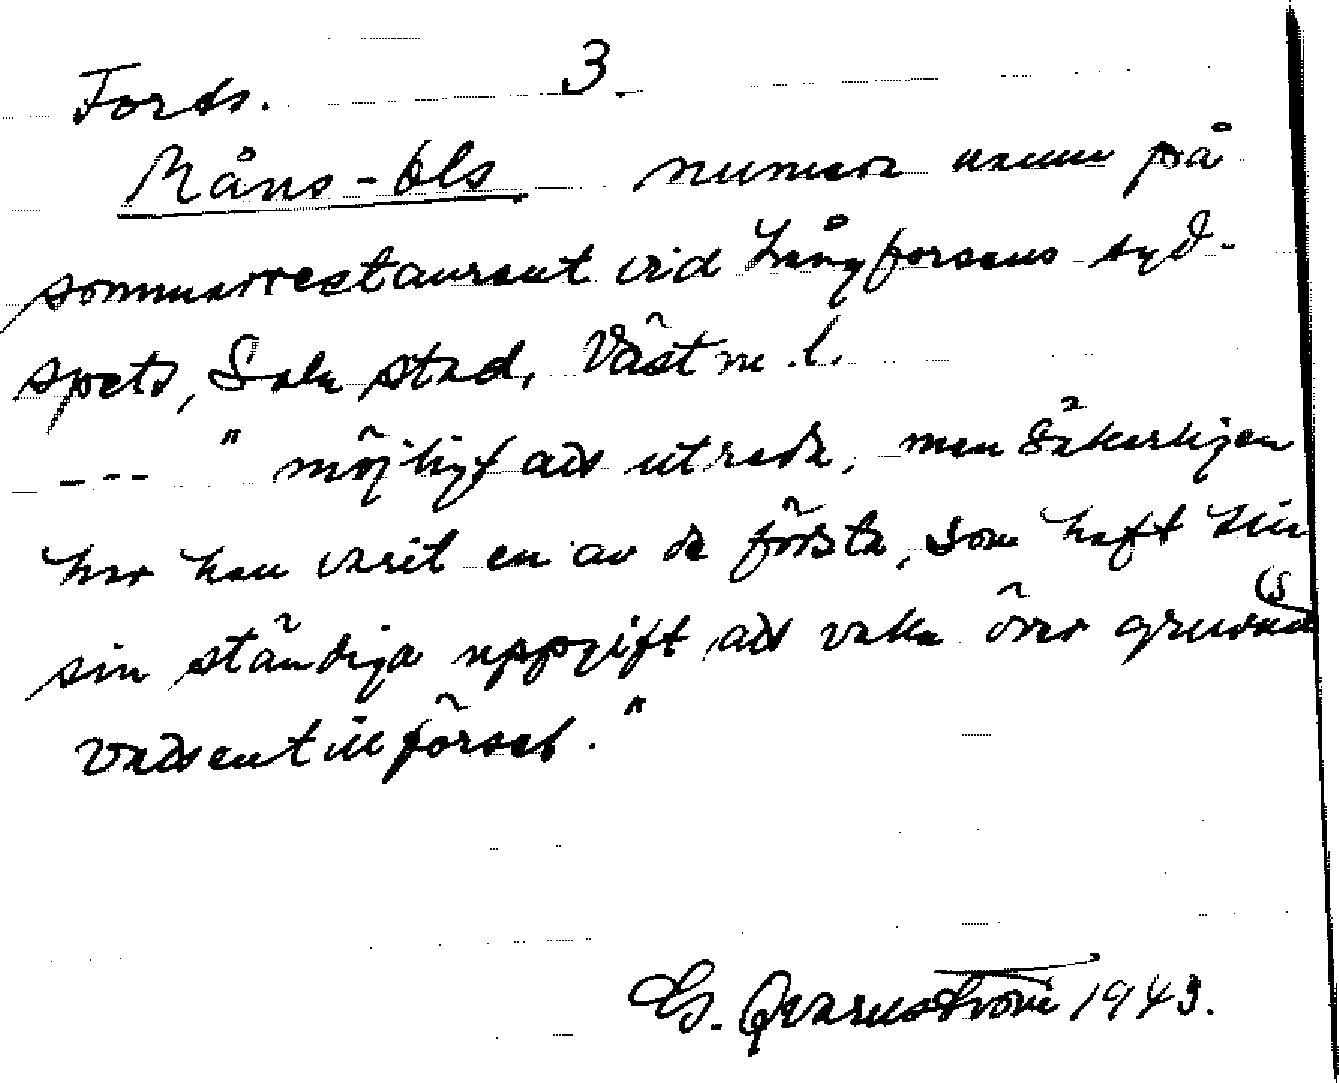 Forts. 3.
Måns-Ols numera namn på
sommarrestaurant vid Långforsens syd-
spets, Sala stad, Västm.l.
--- " möjligt att utreda, men säkerligen
har han varit en av de första, som haft till
sin ständiga uppgift att vaka över gruvans
vattentillförsel."
G. Qvarnström 1943.